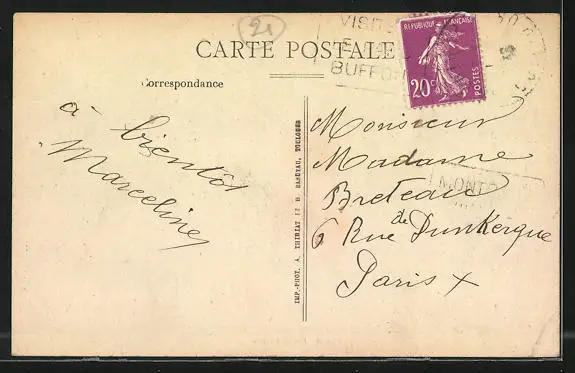 21
CARTE POSTALE
VISIT
BUFFON
REPUBLIQUE FRANÇAISE
20c
POSTES
Correspondance
à bientôt
Marceline
Monsieur
Madame
Breteau
MONT
6 Rue de Dunkerque
Paris X
IMP.-PHOT. A. THIRIAT ET B. BASUYAU, TOULOUSE